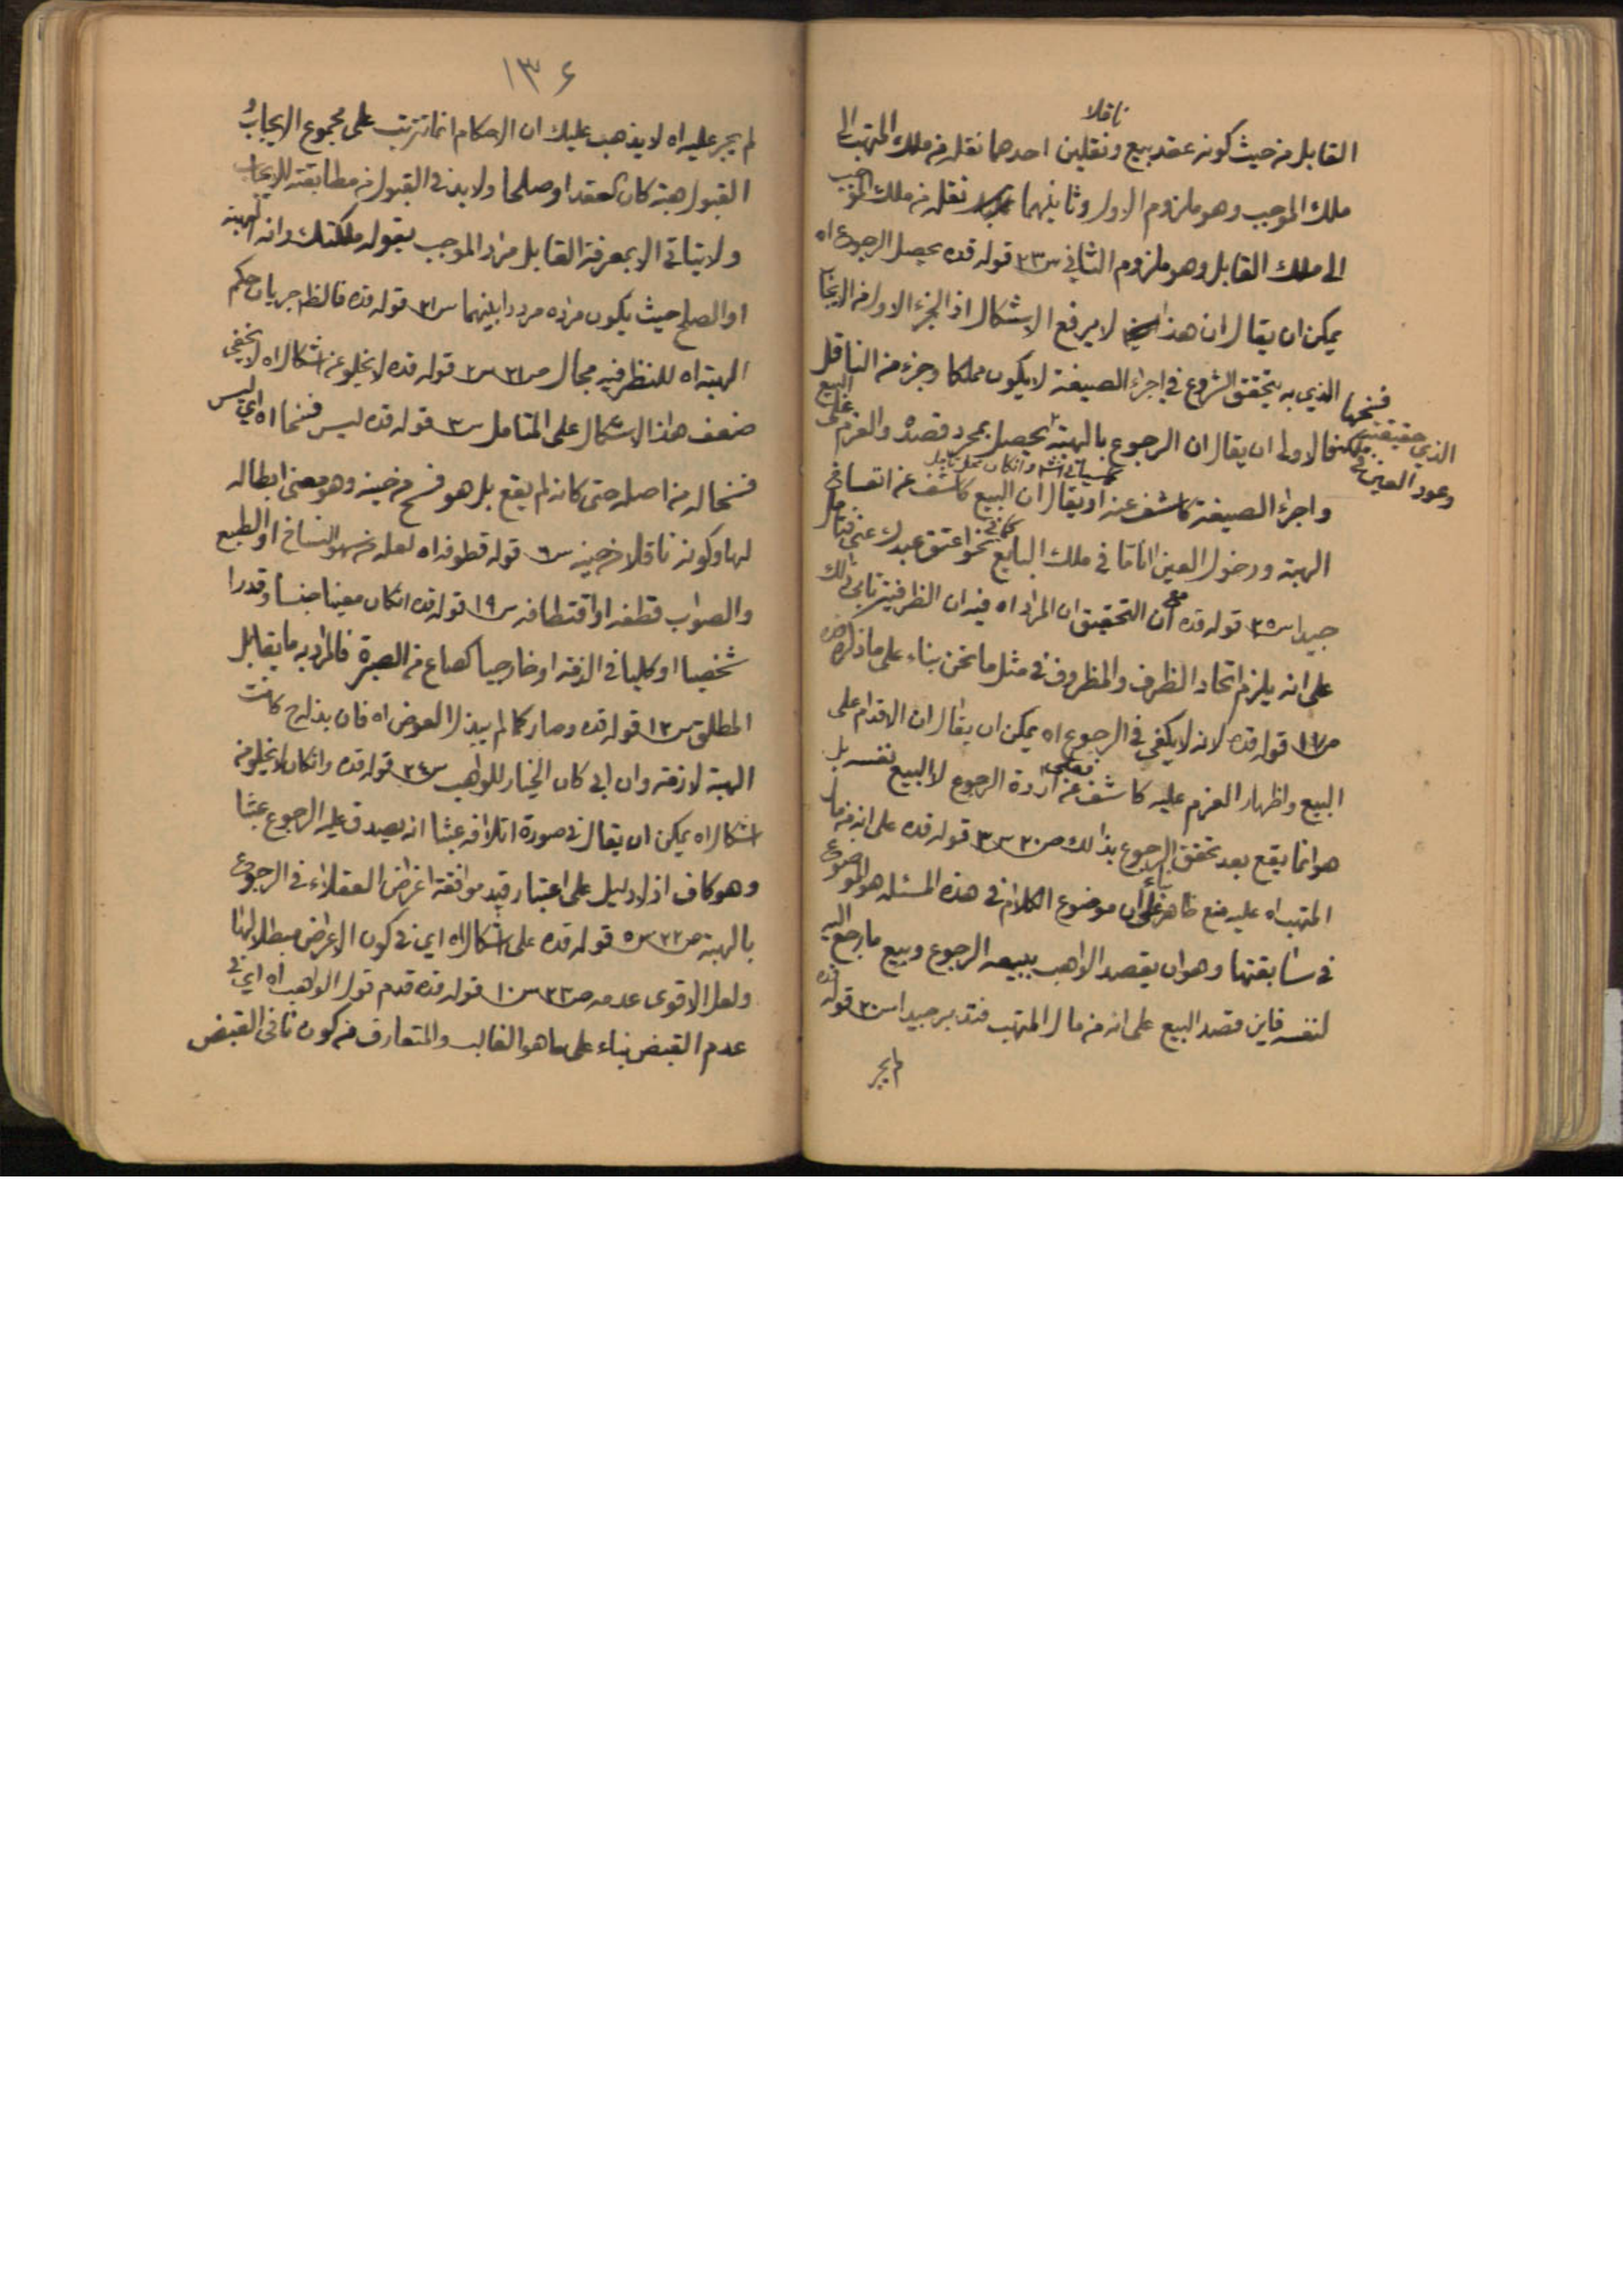 ناقلا
القابل من حيث كونه عقد بيع ونقلين احدهما نقله من ملك المتهب الى
ملك الموجب وهو ملزوم الاول وثانيهما نقله من ملك الموجب
الى ملك القابل وهو ملزوم الثاني س٢٣ قوله قده يحصل الرجوع اه
يمكن ان يقال ان هذا لا يرفع الاشكال اذ الجزء الاول من الايجاب
الذي به يتحقق الشروع في اجراء الصيغة لا يكون مملكا وجزء من الناقل
فسخها
الذي حقيقة
وعود العين في ملكه
فالاولى ان يقال ان الرجوع بالهبة يحصل بمجرد قصده والعزم على البيع
واجراء الصيغة كاشف عنه او يقال ان البيع كاشف عن انفساخ
الهبة ودخول العين آنا ما في ملك البايع كما في نحو اعتق عبدك عني فتأمل
جيدا س٢٥ قوله قده مع ان التحقيق ان المراد اه فيه ان الظرفية تابى ذلك
على انه يلزم اتحاد الظرف والمظروف في مثل ما نحن بناء على ما ذكره قده
ص١٦ قوله قده لانه لا يكفي في الرجوع اه يمكن ان يقال ان الاقدام على
البيع واظهار العزم عليه كاشف عن ارادة الرجوع لا البيع نفسه بل
هو انما يقع بعد تحقق الرجوع بذالك ص٢٠ س٣ قوله قده على انه من مال
المتهب اه عليه منع ظاهر بناء على ان موضوع الكلام في هذه المسئلة هو الموضوع
في سابقتها وهو ان يقصد الواهب ببيعه الرجوع وبيع ما رجع اليه
لنفسه فاين قصد البيع على انه من مال المتهب فتدبر جيدا س٢٠ قوله قده
لم يجر
١٣٦
لم يجر عليه اه لا يذهب عليك ان الاحكام انما تترتب على مجموع الايجاب و
القبول هبة كان العقد او صلحا ولا بد في القبول من مطابقته للايجاب
ولا يتاتى الا بمعرفة القابل مراد الموجب بقوله ملكتك وانه الهبة
او الصلح حيث يكون مراده مرددا بينهما س٢١ قوله قده فالظم جريان حكم
الهبة اه للنظر فيه مجال ص٢١ س٢ قوله قده لا يخلو عن اشكال اه لا يخفى
ضعف هذا الاشكال على المتامل س٣ قوله قده ليس فسخا اه اي ليس
فسخا له من اصله حتى كانه لم يقع بل هو فسخ من حينه وهو معنى ابطاله
لها وكونه ناقلا من حينه س٦ قوله قطوفه اه لعله من سهو النساخ او الطبع
والصواب قطفه او اقتطافه س١٩ قوله قده ان كان معينا جنسا وقدرا
شخصيا او كليا في الذمة او خارجيا كصاع من الصبرة فالمراد به ما يقابل
المطلق س١٢ قوله قده وصار كما لم يبذل العوض اه فان بذله ح كانت
الهبة لازمة وان ابى كان الخيار للواهب س٢٤ قوله قده وان كان لا يخلو من
اشكال اه يمكن ان يقال في صورة اتلافه عبثا انه يصدق عليه الرجوع عبثا
وهو كاف اذ لا دليل على اعتبار قيد موافقة اغراض العقلاء في الرجوع
بالهبة ص٢٢ س٥ قوله قده على اشكال اه اي في كون الاعراض مبطلا لها
ولعل الاقوى عدمه ص٢٣ س١٠ قوله قده قدم قول الواهب اه اي في
عدم القبض بناء على ما هو الغالب والمتعارف من كون نافى القبض